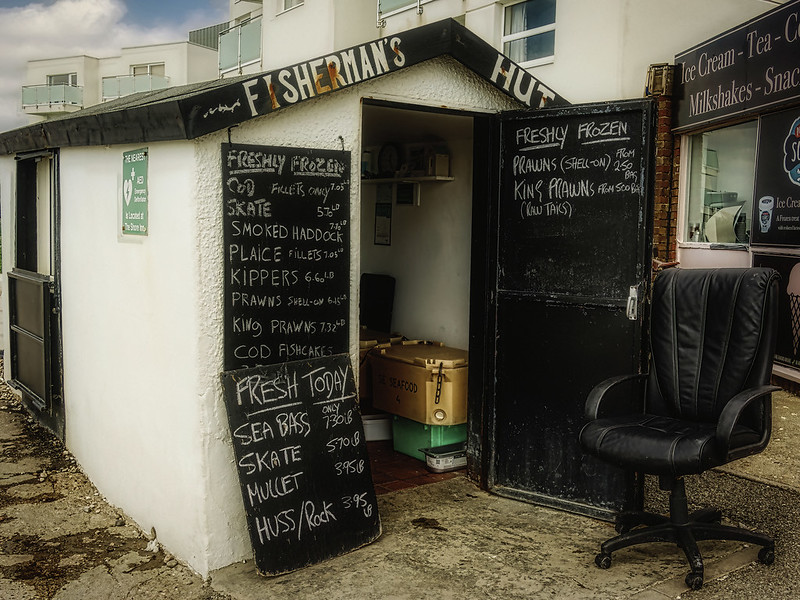 FISHERMAN'S HUT
THE NEAREST
AED
Emergency
Defibrillator
is Located at
The Shore Inn
FRESHLY FROZEN
COD FILLETS ONLY 7.05 LB
SKATE 5.70 LB
SMOKED HADDOCK
PLAICE FILLETS 7.05 LB
KIPPERS 6.60 LB
PRAWNS SHELL-ON 6.15
KING PRAWNS 7.32 LB
COD FISHCAKES
FRESH TODAY
SEA BASS ONLY 7.30 LB
SKATE 5.70 LB
MULLET 3.95 LB
HUSS/ROCK 3.95 LB
SEAFOOD
4
FRESHLY FROZEN
PRAWNS (SHELL-ON) FROM 2.50 BAG
KING PRAWNS FROM 5.00 BAG
(RAW TAILS)
Ice Cream - Tea - Co
Milkshakes - Snac
Ice Crea
A Frozen treat